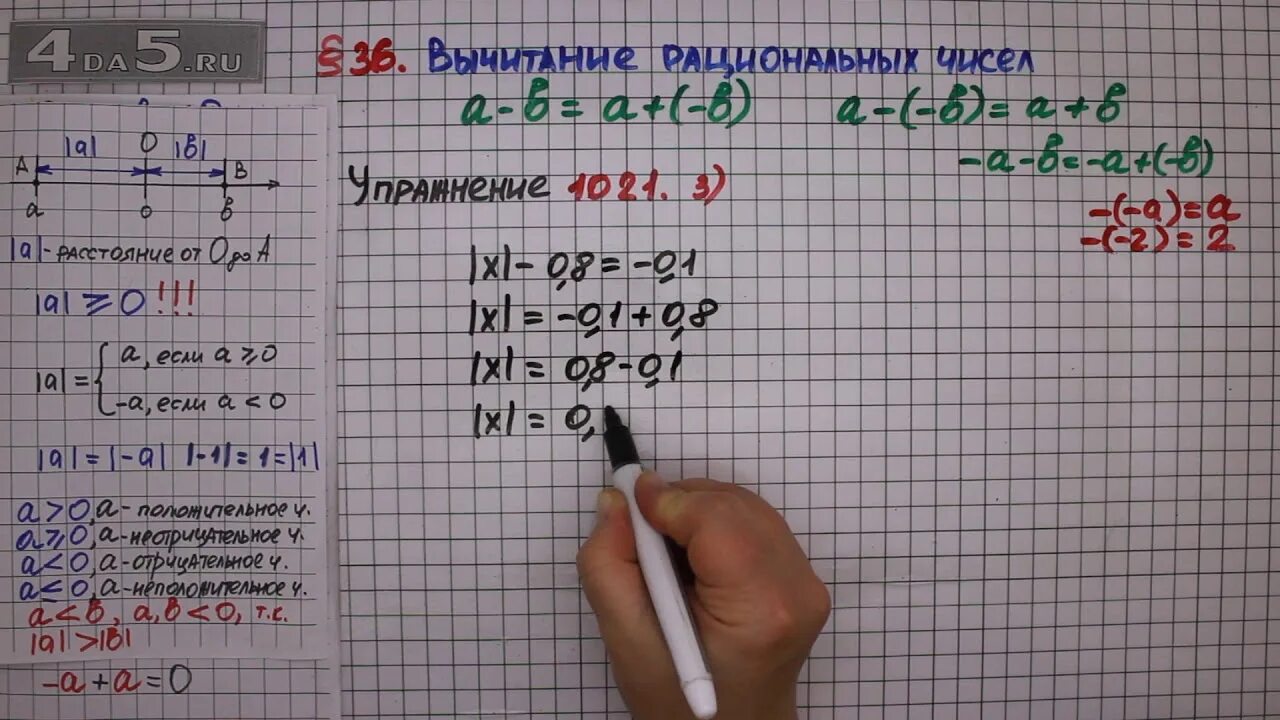 4DA5.RU
§ 36. Вычитание рациональных чисел
a - b = a + (-b)
a - (-b) = a + b
-a - b = -a + (-b)
-(-a) = a
-(-2) = 2
Упражнение 1021. 3)
|x| - 0,8 = -0,1
|x| = -0,1 + 0,8
|x| = 0,8 - 0,1
|x| = 0,
|a| O |b|
A B
a o b
|a| - расстояние от O до A
|a| ⩾ 0 !!!
|a| = { a, если a ⩾ 0
-a, если a < 0
|a| = |-a| |-1| = 1 = |1|
a > 0, a - положительное ч.
a ⩾ 0, a - неотрицательное ч.
a < 0, a - отрицательное ч.
a ≤ 0, a - неположительное ч.
a < b, a, b < 0, т.к.
|a| > |b|
-a + a = 0